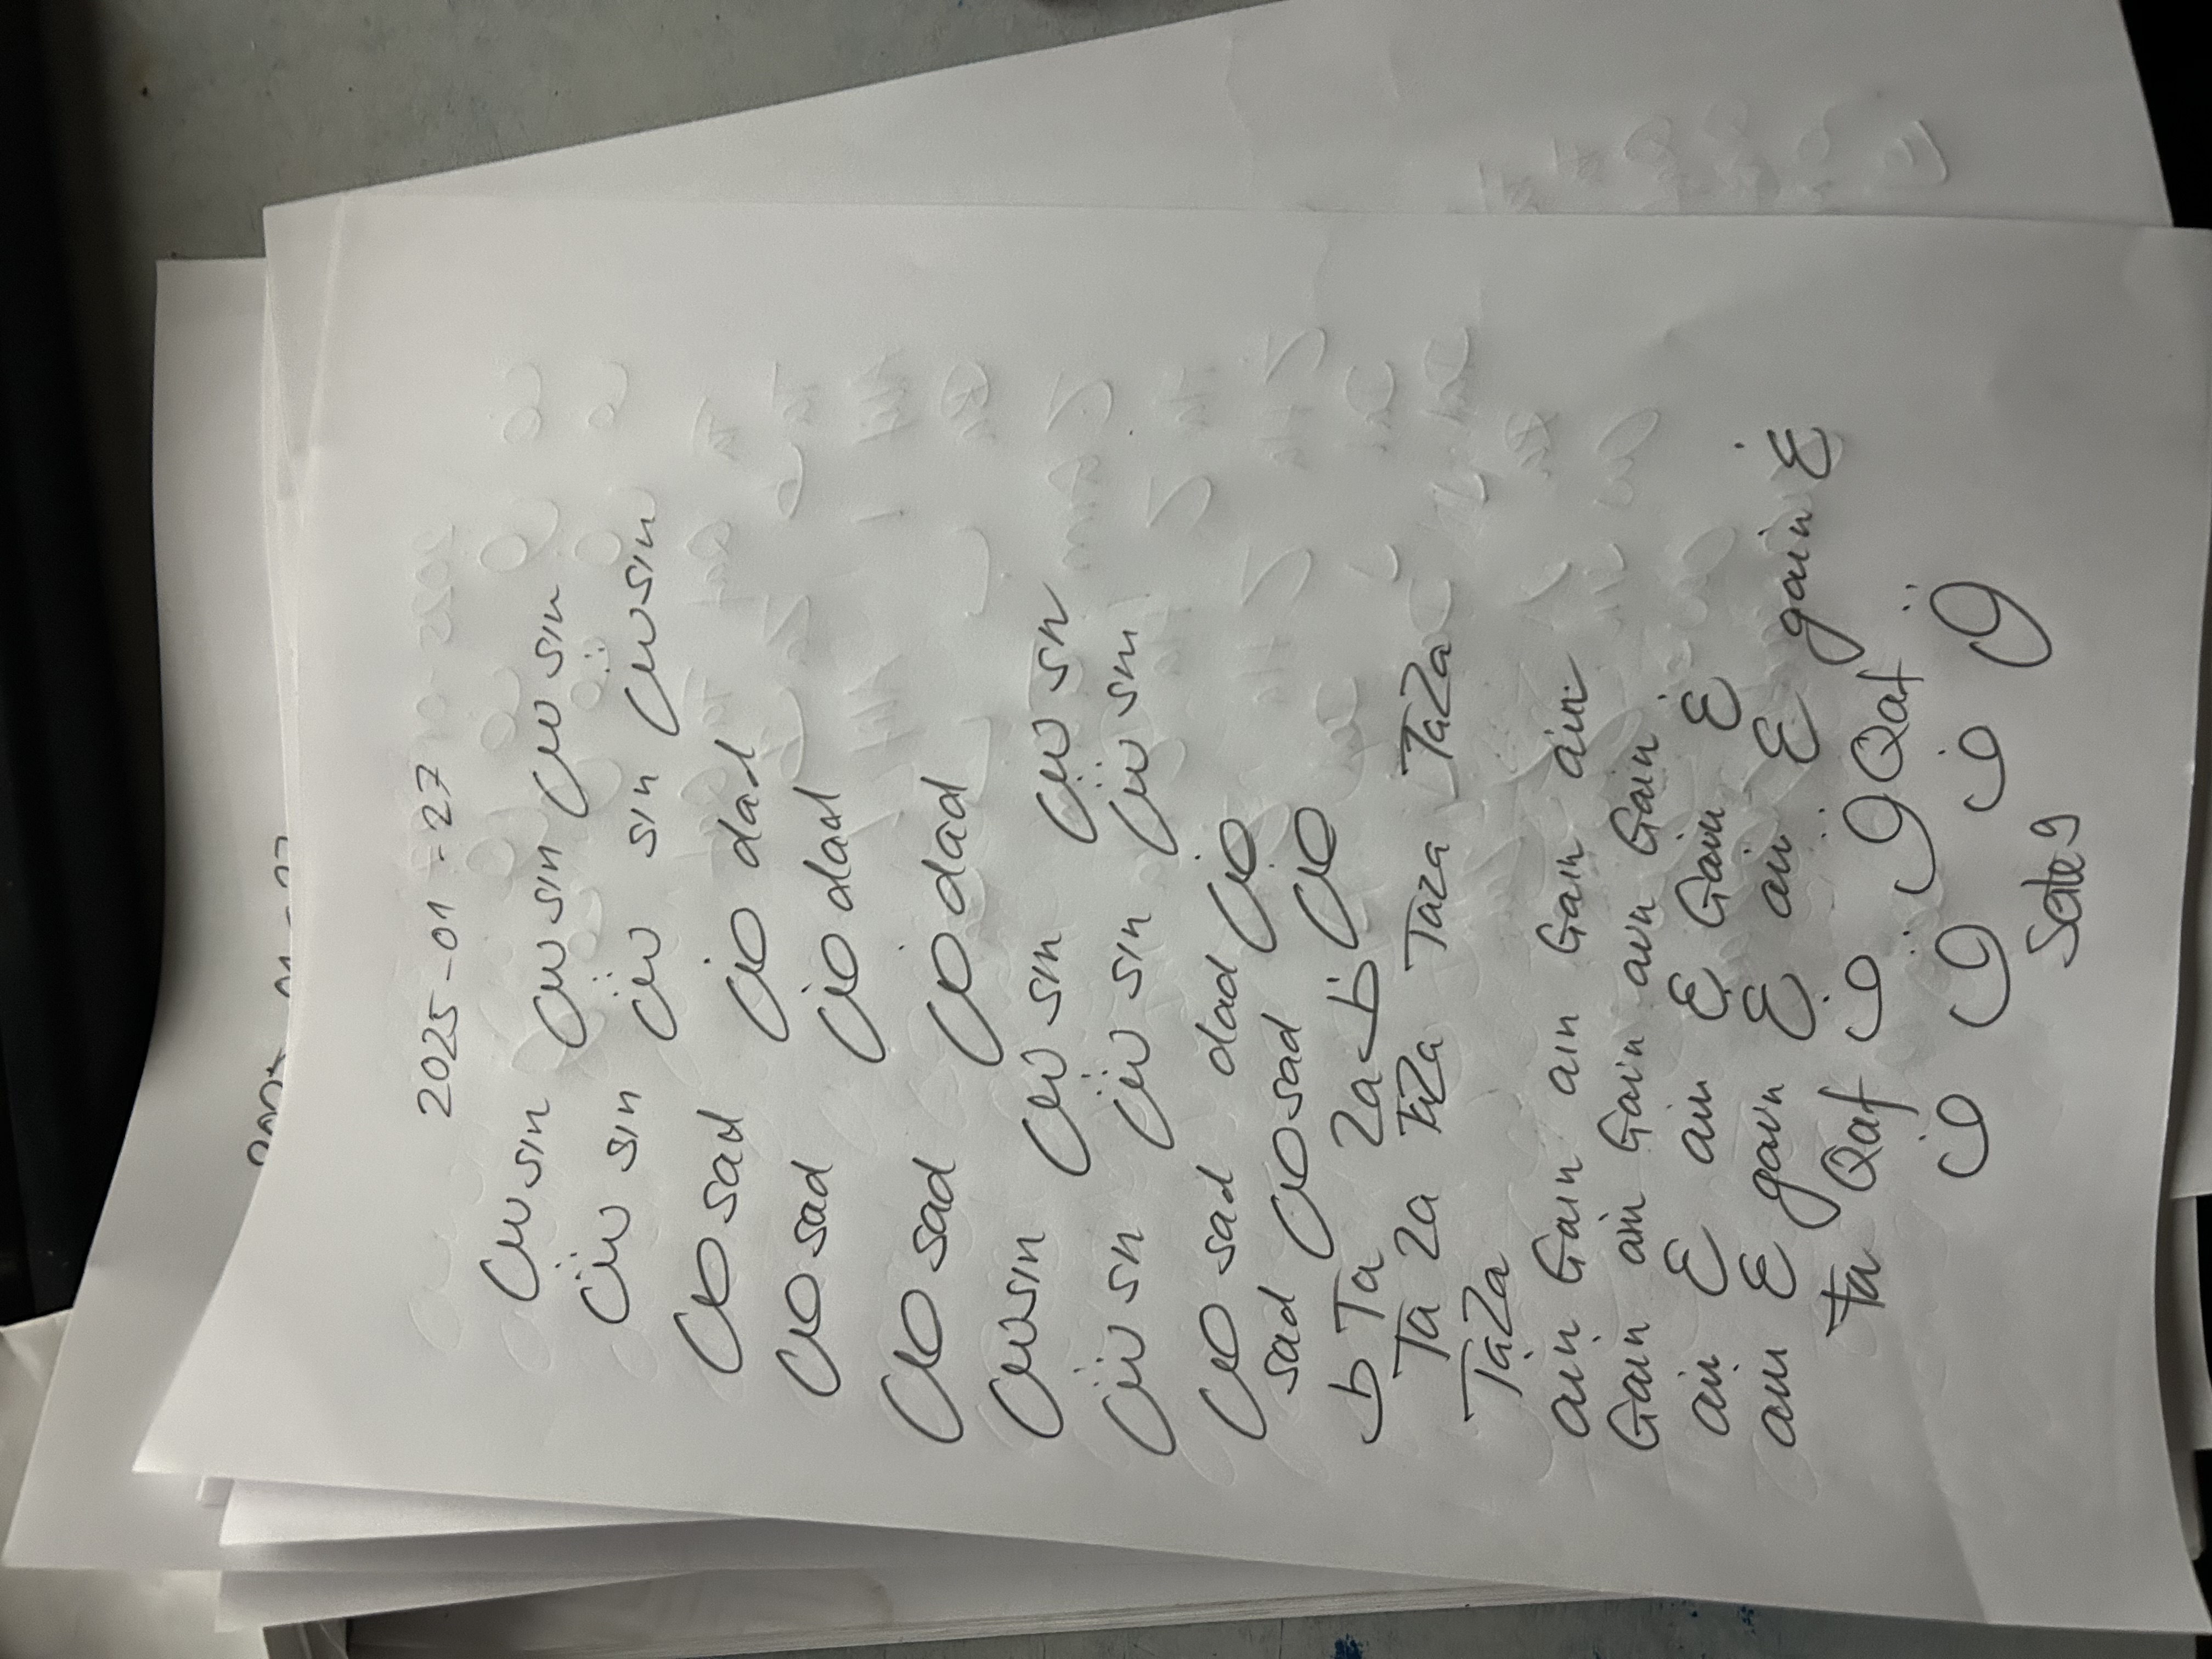 2025-01-27
س sin س sin س sin
ش sin ش sin ش sin
ص sad ض dad
ص sad ض dad
ص sad ض dad
س sin س sin س sn
ش sn ش sin ش sin
ص sad dad ض
sad ص sad ض
ط Ta Za ظ
Ta Za TaZa Taza TaZa
TaZa
ain Gain ain Gain ain
Gain ain Gain ain Gain
ain ع ain ع Gain غ
ain ع gain غ ain ع gain غ
Fa Qaf ف ق Qaf
ف ق ف ق
Seite 9